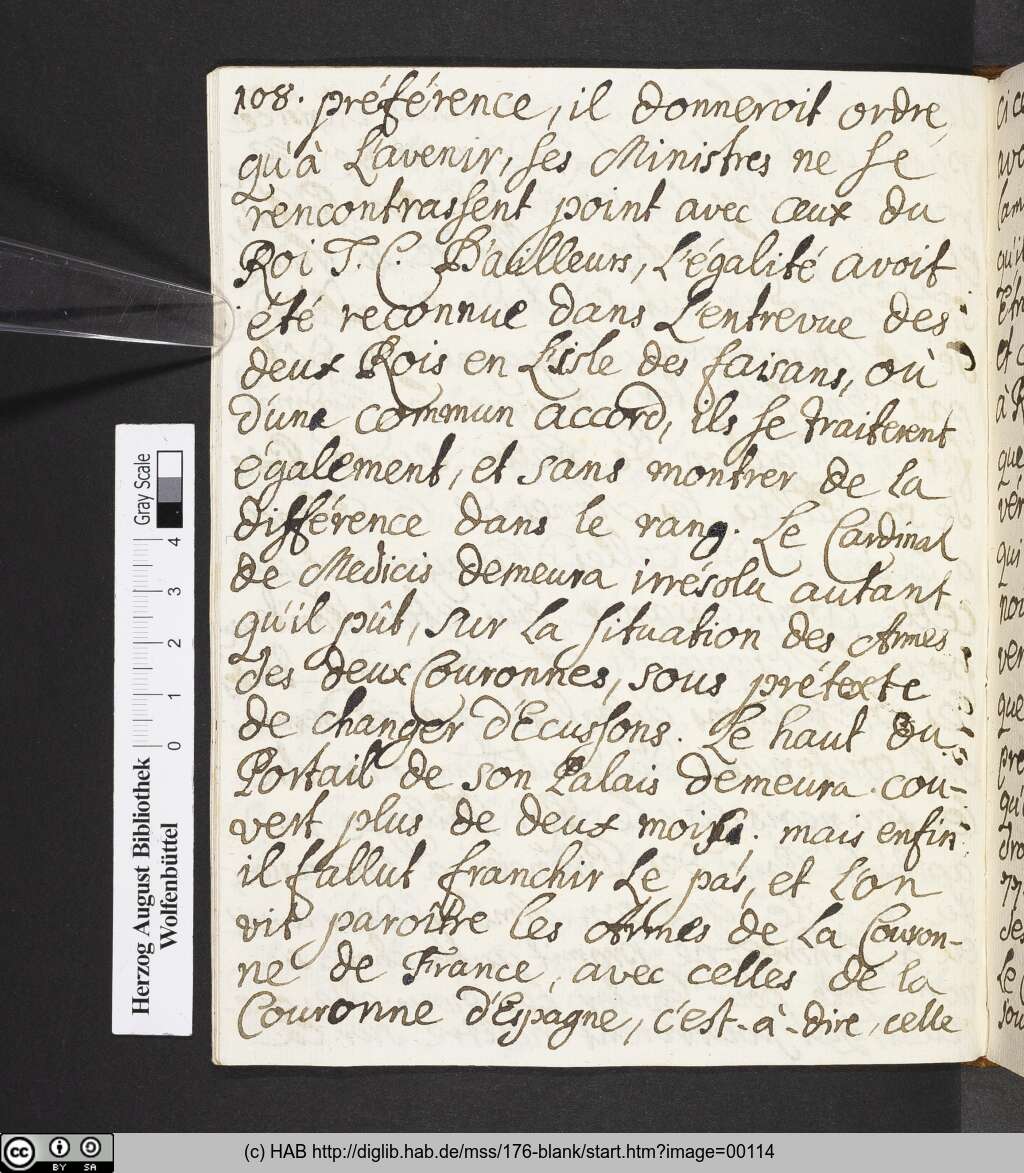 108. préférence, il donneroit ordre,
qu'à L'avenir, ses Ministres ne se
rencontrassent point avec ceux du
Roi T. C. D'ailleurs, L'égalité avoit
été reconnue dans L'entrevue des
deux Rois en L'isle des faisans, où
d'une commun accord, ils se traiterent
également, et sans montrer de la
différence dans le rang. Le Cardinal
de Medicis demeura irrésolu autant
qu'il pût, sur la situation des Armes
des deux Couronnes, sous prétexte
de changer d'Ecussons. Le haut du
Portail de son Palais demeura cou-
vert plus de deux mois; mais enfin
il fallut franchir Le pas, et L'on
vit paroître les Armes de La Couron-
ne de France, avec celles de la
Couronne d'Espagne, c'est-à-dire, celle
Herzog August Bibliothek
Wolfenbüttel
0 1 2 3 4
Gray Scale
cc BY SA
(c) HAB http://diglib.hab.de/mss/176-blank/start.htm?image=00114